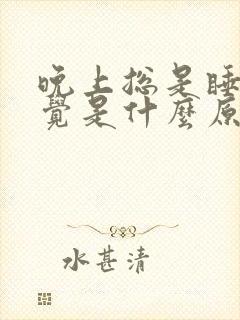 晚上总是睡
覺是什麼原
水甚清